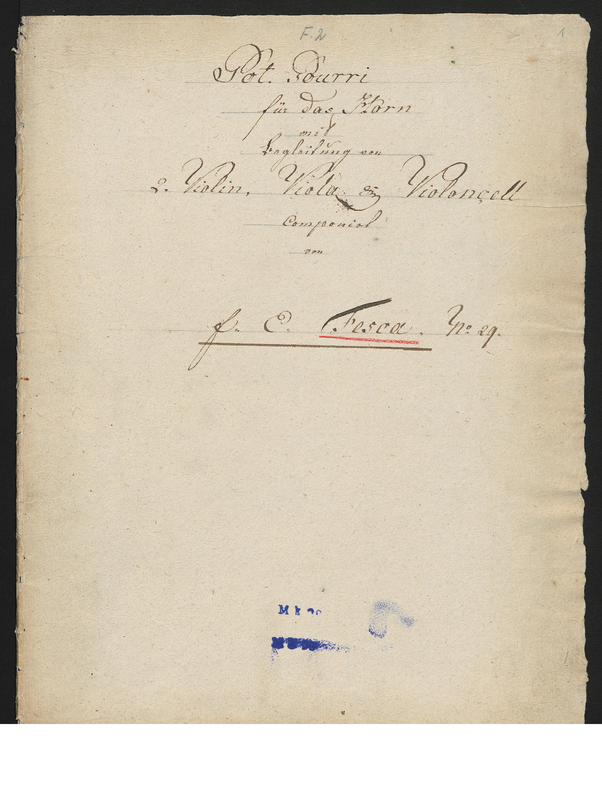 F. 2
1
Pot. Pourri
für das Horn
mit
Begleitung von
2. Violin, Viola & Violoncell
Componiert
von
F. E. Fesca. No. 29.